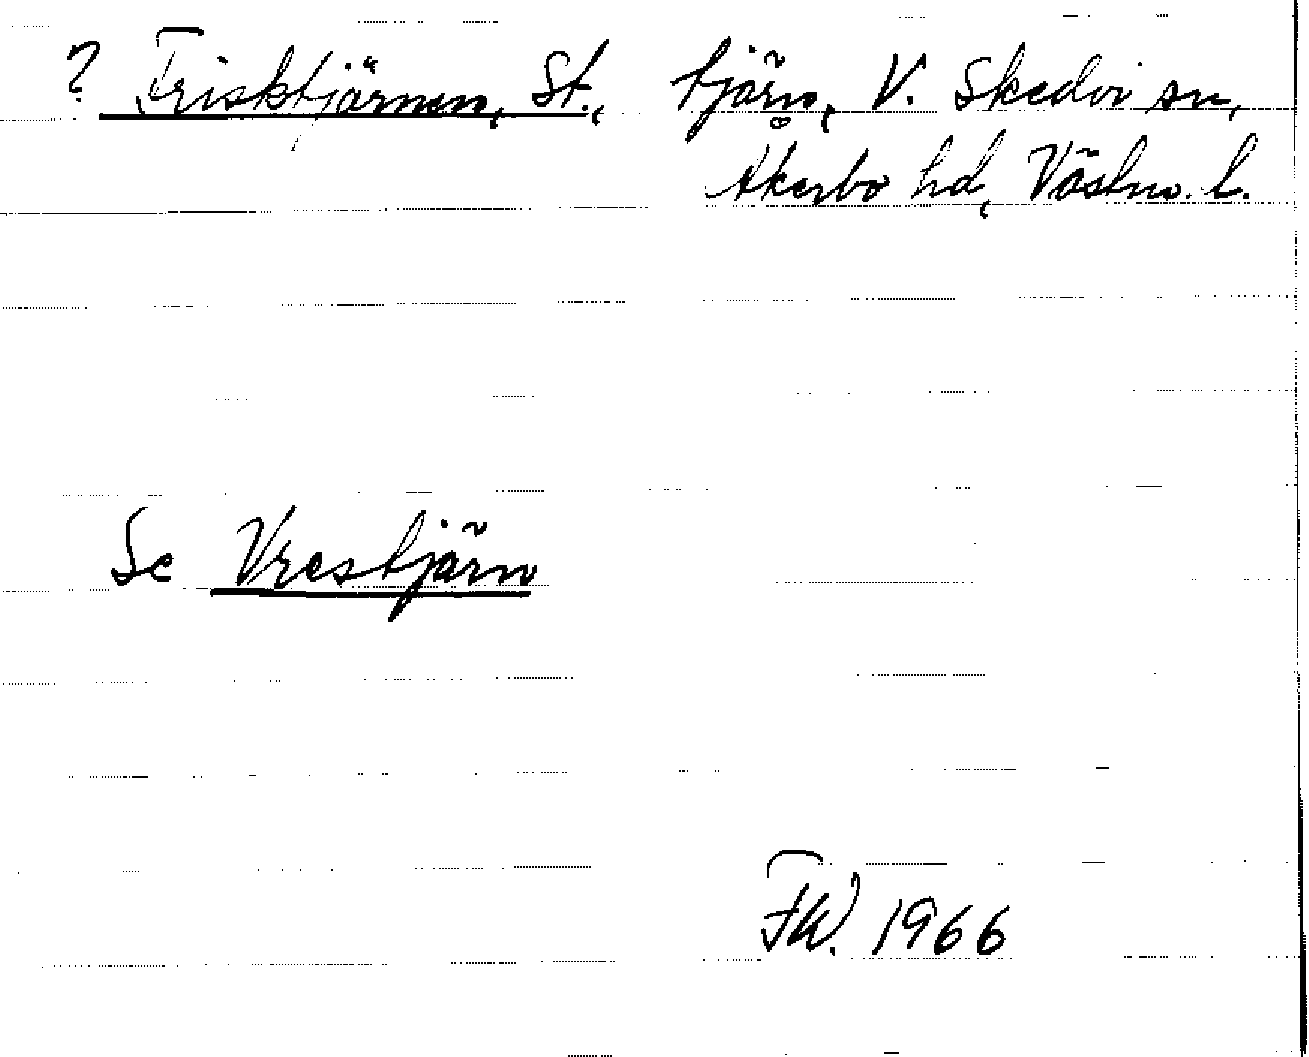 ? Frisktjärnen, St., tjärn, V. Skedvi sn,
Åkerbo hd, Västm. l.
Se Vrestjärn
FW. 1966